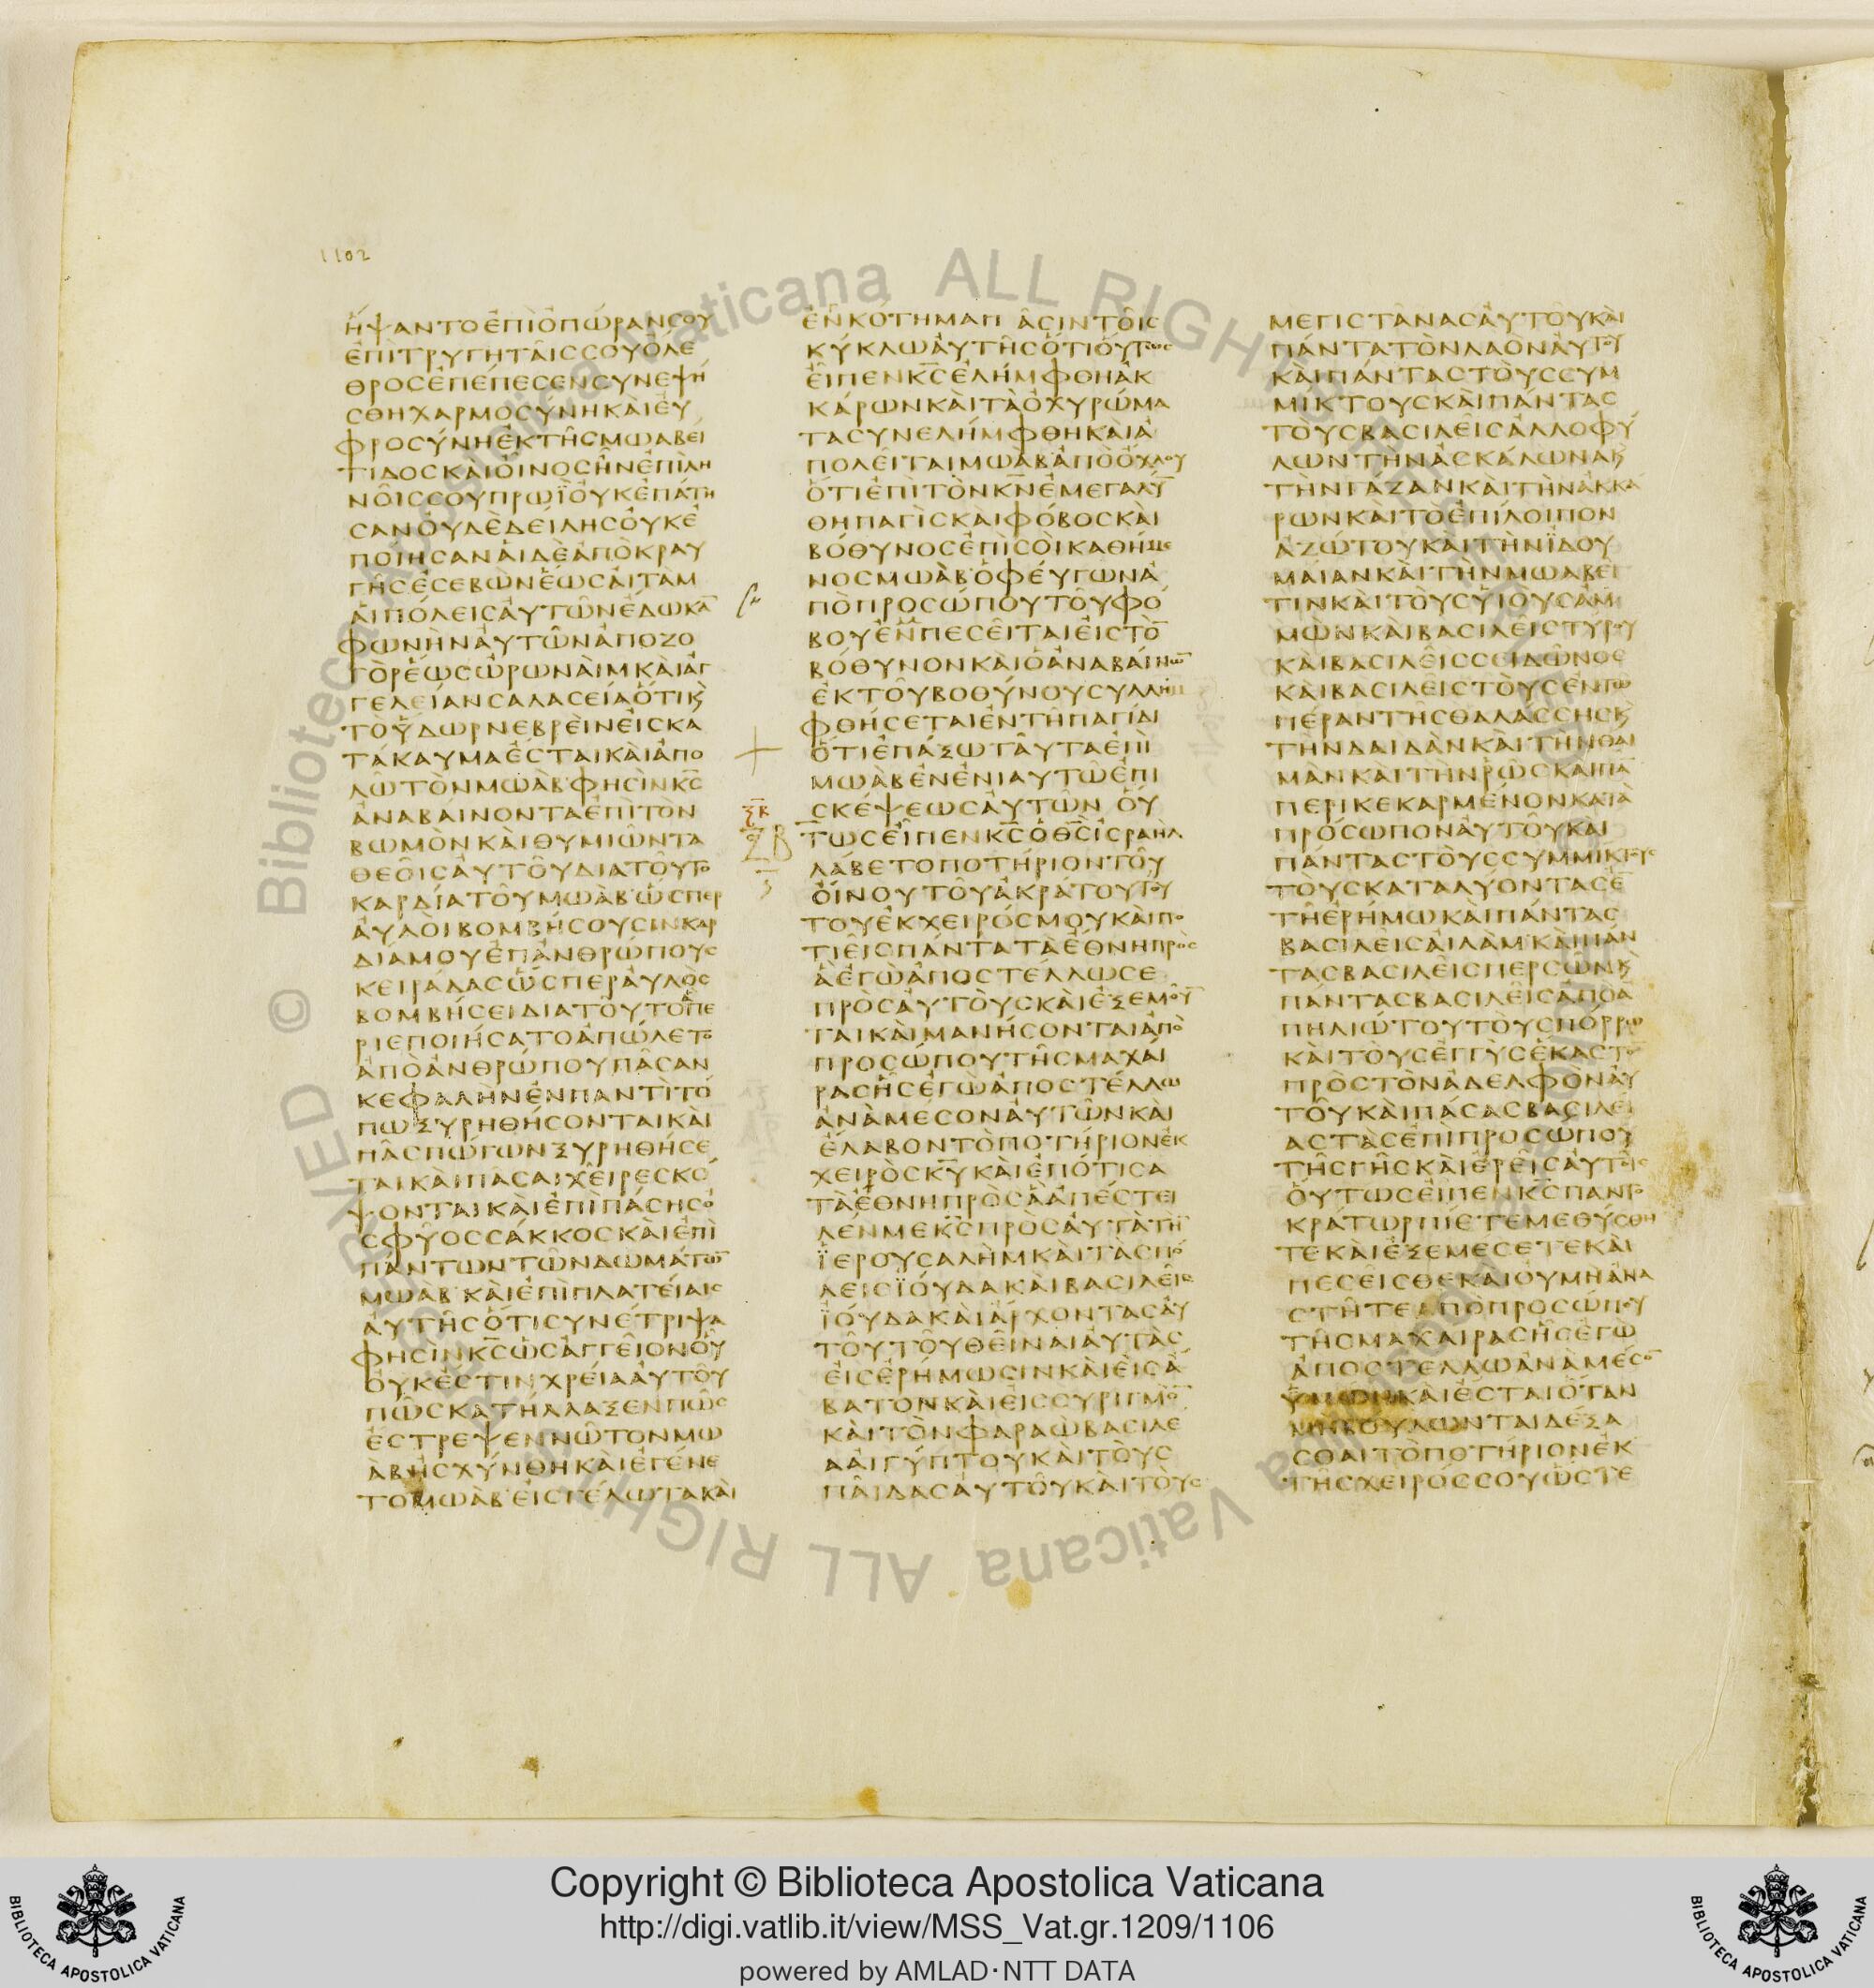 1102
ἥψαντο ἐπὶ ὀπώραν σου
ἐπὶ τρυγηταῖς σου ὄλε
θρος ἐπέπεσεν συνεψή
σθη χαρμοσύνη καὶ εὐ
φροσύνη ἐκ τῆς μωαβεί
τιδος καὶ οἶνος ἦν ἐπὶ λη
νοῖς σου πρωῒ οὐκ ἐπάτη
σαν οὐδὲ δείλης οὐκ ἐ
ποίησαν αἰδὲ ἀπὸ κραυ
γῆς ἐσεβὼν ἕως αἰταμ
αἱ πόλεις αὐτῶν ἔδωκα̅
φωνὴν αὐτῶν ἀπὸ ζο
γὸρ ἕως ὡρωνὰιμ καὶ ἀγ
γελείαν σαλασεία ὅτι κ̀
τὸ ὕδωρ νεβρὲιν εἰς κα
τάκαυμα ἔσται καὶ ἀπο
λῶ τὸν μωὰβ φησὶν κ̅ς̅
ἀναβαίνοντα ἐπὶ τὸν
βωμὸν καὶ θυμιῶντα
θεοῖς αὐτοῦ διατοῦτο
καρδία τοῦ μωὰβ ὥσπερ
αὐλὸι βομβήσουσιν καρ
δία μου ἐπ ἀνθρώπους
κειράδας ὥσπερ αὐλὸς
βομβήσει διατοῦτο ἃ πε
ριεποιήσατο ἀπώλετο
ἀπὸ ἀνθρώπου πᾶσαν
κεφαλὴν ἐν παντὶ τό
πω ξυρηθήσονται καὶ
πᾶς πώγων ξυρηθήσε
ται καὶ πᾶσαι χεῖρες κό
ψονται καὶ ἐπὶ πάσης ὀ
σφῦος σάκκος καὶ ἐπὶ
πάντων τῶν δωμάτω̅
μωὰβ καὶ ἐπὶ πλατείαις
αὐτῆς ὅτι συνέτριψα
φησὶν κ̅ς̅ ὡς ἀγγεῖον οὗ
οὐκ ἔστιν χρεία αὐτοῦ
πῶς κατήλλαξεν πῶς
ἔστρεψεν νῶτον μω
ὰβ ἠσχύνθη καὶ ἐγένε
το μωὰβ εἰς γέλωτα καὶ
κύκλω αὐτῆς ὅτι οὕτως
εἶπεν κ̅ς̅ ἐλήμφθη ἀκ
κάρων καὶ τὰ ὀχυρώμα
τα συνελήμφθη καὶ ἀ
πολεῖται μωὰβ ἀπὸ ὄχλου
ὅτι ἐπὶ τὸν κ̅ν̅ ἐμεγαλύ̅
θη παγὶς καὶ φόβος καὶ
βόθυνος ἐπὶ σοὶ καθήμε
νος μωὰβ ὁ φεύγων ἀ
πὸ προσώπου τοῦ φό
βου ἐμπεσεῖται εἰς τὸ̅
βόθυνον καὶ ὁ ἀναβαίνω̅
ἐκ τοῦ βοθύνου συλλημ
φθήσεται ἐν τῆ παγίδι
ὅτι ἐπάξω ταῦτα ἐπὶ
μωὰβ ἐν ἐνιαυτῶ ἐπι
σκέψεως αὐτῶν οὕ
ϛ̅β̅
τως εἶπεν κ̅ς̅ ὁ θ̅ς̅ ἰσραὴλ
λάβε τὸ ποτήριον τοῦ
οἴνου τοῦ ἀκράτου τού
του ἐκ χειρός μου καὶ πο
τιεῖς πάντα τὰ ἔθνη πρὸς
ἃ ἐγὼ ἀποστέλλω σε
πρὸς αὐτοὺς καὶ ἐξεμοῦ̅
ται καὶ μανήσονται ἀπὸ
προσώπου τῆς μαχαί
ρας ἧς ἐγὼ ἀποστέλλω
ἀνὰ μεσον αὐτῶν καὶ
ἔλαβον τὸ ποτήριον ἐκ
χειρὸς κ̅υ̅ καὶ ἐπότισα
τὰ ἔθνη πρὸς ἃ ἀπέστει
λέν με κ̅ς̅ πρὸς αὐτὰ τὴ̅
ϊερουσαλὴμ καὶ τὰς πό
λεις ϊούδα καὶ βασιλεῖς
ϊούδα καὶ ἄρχοντας αὐ
τοῦ τοῦ θεῖναι αὐτὰς
εἰς ἐρήμωσιν καὶ εἰς ἄ
βατον καὶ εἰς συριγμὸ̅
καὶ τὸν φαραὼ βασιλέ
α αἰγύπτου καὶ τοὺς
παῖδας αὐτοῦ καὶ τοὺς
μεγιστᾶνας αὐτοῦ καὶ
πάντα τὸν λαὸν αὐτοῦ
καὶ πάντας τοὺς συμ
μίκτους καὶ πάντας
τοὺς βασιλεῖς ἀλλοφύ
λων τὴν ἀσκάλωνα κ̀
τὴν γάζαν καὶ τὴν ἀκκά
ρων καὶ τὸ ἐπίλοιπον
ἀζώτου καὶ τὴν ϊδου
μαίαν καὶ τὴν μωαβεῖ
τιν καὶ τοὺς υἱοὺς ἀμ
μὼν καὶ βασιλεῖς τύρου
καὶ βασιλεῖς σειδῶνος
καὶ βασιλεῖς τοὺς ἐν τῶ
πέραν τῆς θαλάσσης κ̀
τὴν δαιδὰν καὶ τὴν θαι
μὰν καὶ τὴν ῥὼς καὶ πᾶ̅
περικεκαρμένον κατὰ
πρόσωπον αὐτοῦ καὶ
πάντας τοὺς συμμίκτους
τοὺς καταλύοντας ἐ̅
τῆ ἐρήμω καὶ πάντας
βασιλεῖς αἰλὰμ καὶ πάν
τας βασιλεῖς περσῶν κ̀
πάντας βασιλεῖς ἀπὸ ἀ
πηλιώτου τοὺς πόρρω
καὶ τοὺς ἐγγὺς ἕκαστο̅
πρὸς τὸν ἀδελφὸν αὐ
τοῦ καὶ πάσας βασιλεί
ας τὰς ἐπὶ προσώπου
τῆς γῆς καὶ ἐρεῖς αὐτοῖς
οὕτως εἶπεν κ̅ς̅ παντο
κράτωρ πίετε μεθύσθη
τε καὶ ἐξεμέσετε καὶ
πεσεῖσθε καὶ οὐ μὴ ἀνα
στῆτε ἀπὸ προσώπου
τῆς μαχαίρας ἧς ἐγὼ
ἀποστέλλω ἀνὰ μέσο̅
καὶ ἔσται ὅταν
μὴ βούλωνται δέξα
σθαι τὸ ποτήριον ἐκ
τῆς χειρός σου ὥστε
Copyright © Biblioteca Apostolica Vaticana
http://digi.vatlib.it/view/MSS_Vat.gr.1209/1106
powered by AMLAD·NTT DATA
BIBLIOTECA APOSTOLICA VATICANA
BIBLIOTECA APOSTOLICA VATICANA